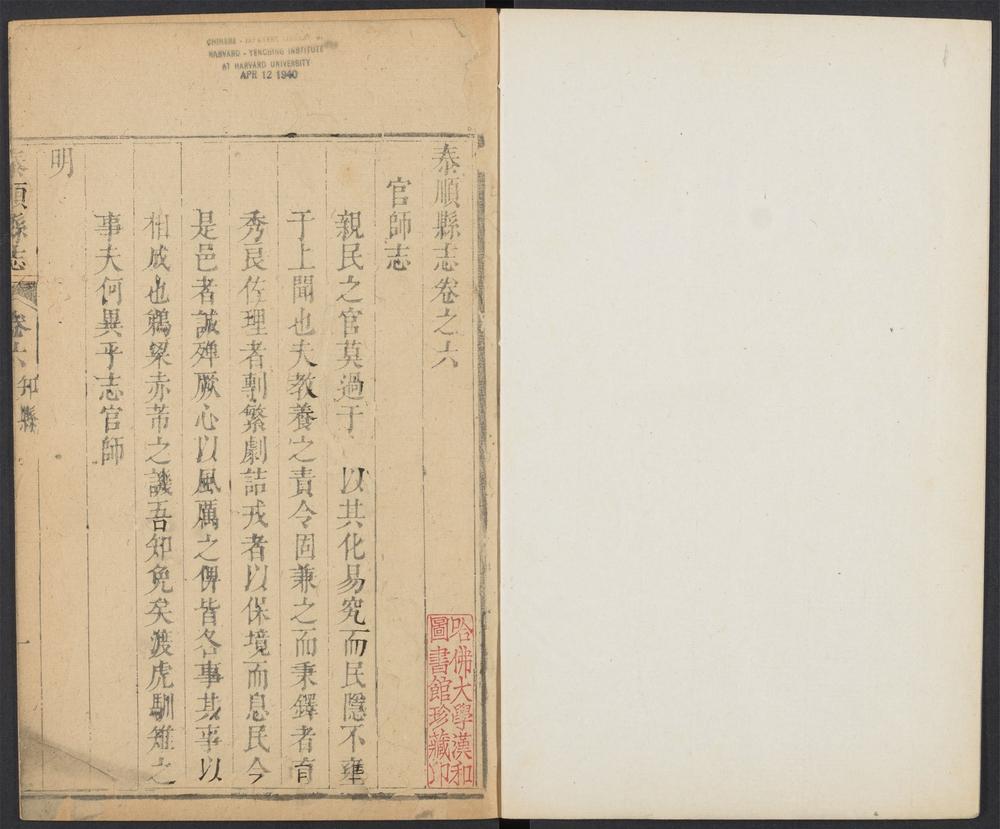 CHINESE - JAPANESE LIBRARY
HARVARD - YENCHING INSTITUTE
AT HARVARD UNIVERSITY
APR 12 1940
泰順縣志卷之六
官師志
親民之官莫過于 以其化易究而民隱不壅
于上聞也夫教養之責令固兼之而秉鐸者育
秀良佐理者剸繁劇詰戎者以保境而息民今
是邑者誠殫厥心以風厲之俾皆各事其事以
相成也鵜梁赤芾之譏吾知免矣渡虎馴雉之
事夫何異乎志官師
明
泰順縣志 卷六 知縣 一
哈佛大學漢和
圖書館珍藏印